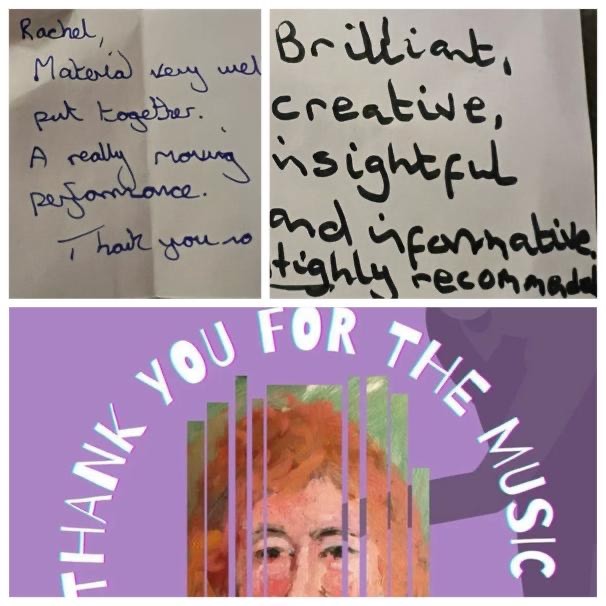 Rachel,
Material very wel
put together.
A really moving
performance.
Thank you so
Brilliant,
creative,
insightful
and informative
Highly recommended
THANK YOU FOR THE MUSIC